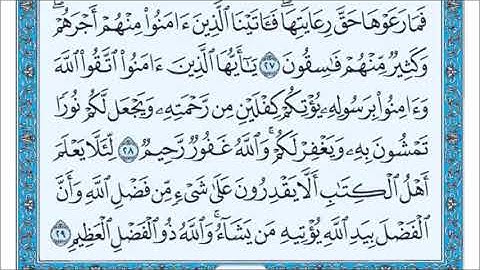 فَمَا رَعَوْهَا حَقَّ رِعَايَتِهَا ۖ فَـَٔاتَيْنَا ٱلَّذِينَ ءَامَنُوا۟ مِنْهُمْ أَجْرَهُمْ ۖ
وَكَثِيرٌ مِّنْهُمْ فَـٰسِقُونَ ٢٧ يَـٰٓأَيُّهَا ٱلَّذِينَ ءَامَنُوا۟ ٱتَّقُوا۟ ٱللَّهَ
وَءَامِنُوا۟ بِرَسُولِهِۦ يُؤْتِكُمْ كِفْلَيْنِ مِن رَّحْمَتِهِۦ وَيَجْعَل لَّكُمْ نُورًا
تَمْشُونَ بِهِۦ وَيَغْفِرْ لَكُمْ ۚ وَٱللَّهُ غَفُورٌ رَّحِيمٌ ٢٨ لِّئَلَّا يَعْلَمَ
أَهْلُ ٱلْكِتَـٰبِ أَلَّا يَقْدِرُونَ عَلَىٰ شَىْءٍ مِّن فَضْلِ ٱللَّهِ ۙ وَأَنَّ
ٱلْفَضْلَ بِيَدِ ٱللَّهِ يُؤْتِيهِ مَن يَشَآءُ ۚ وَٱللَّهُ ذُو ٱلْفَضْلِ ٱلْعَظِيمِ ٢٩